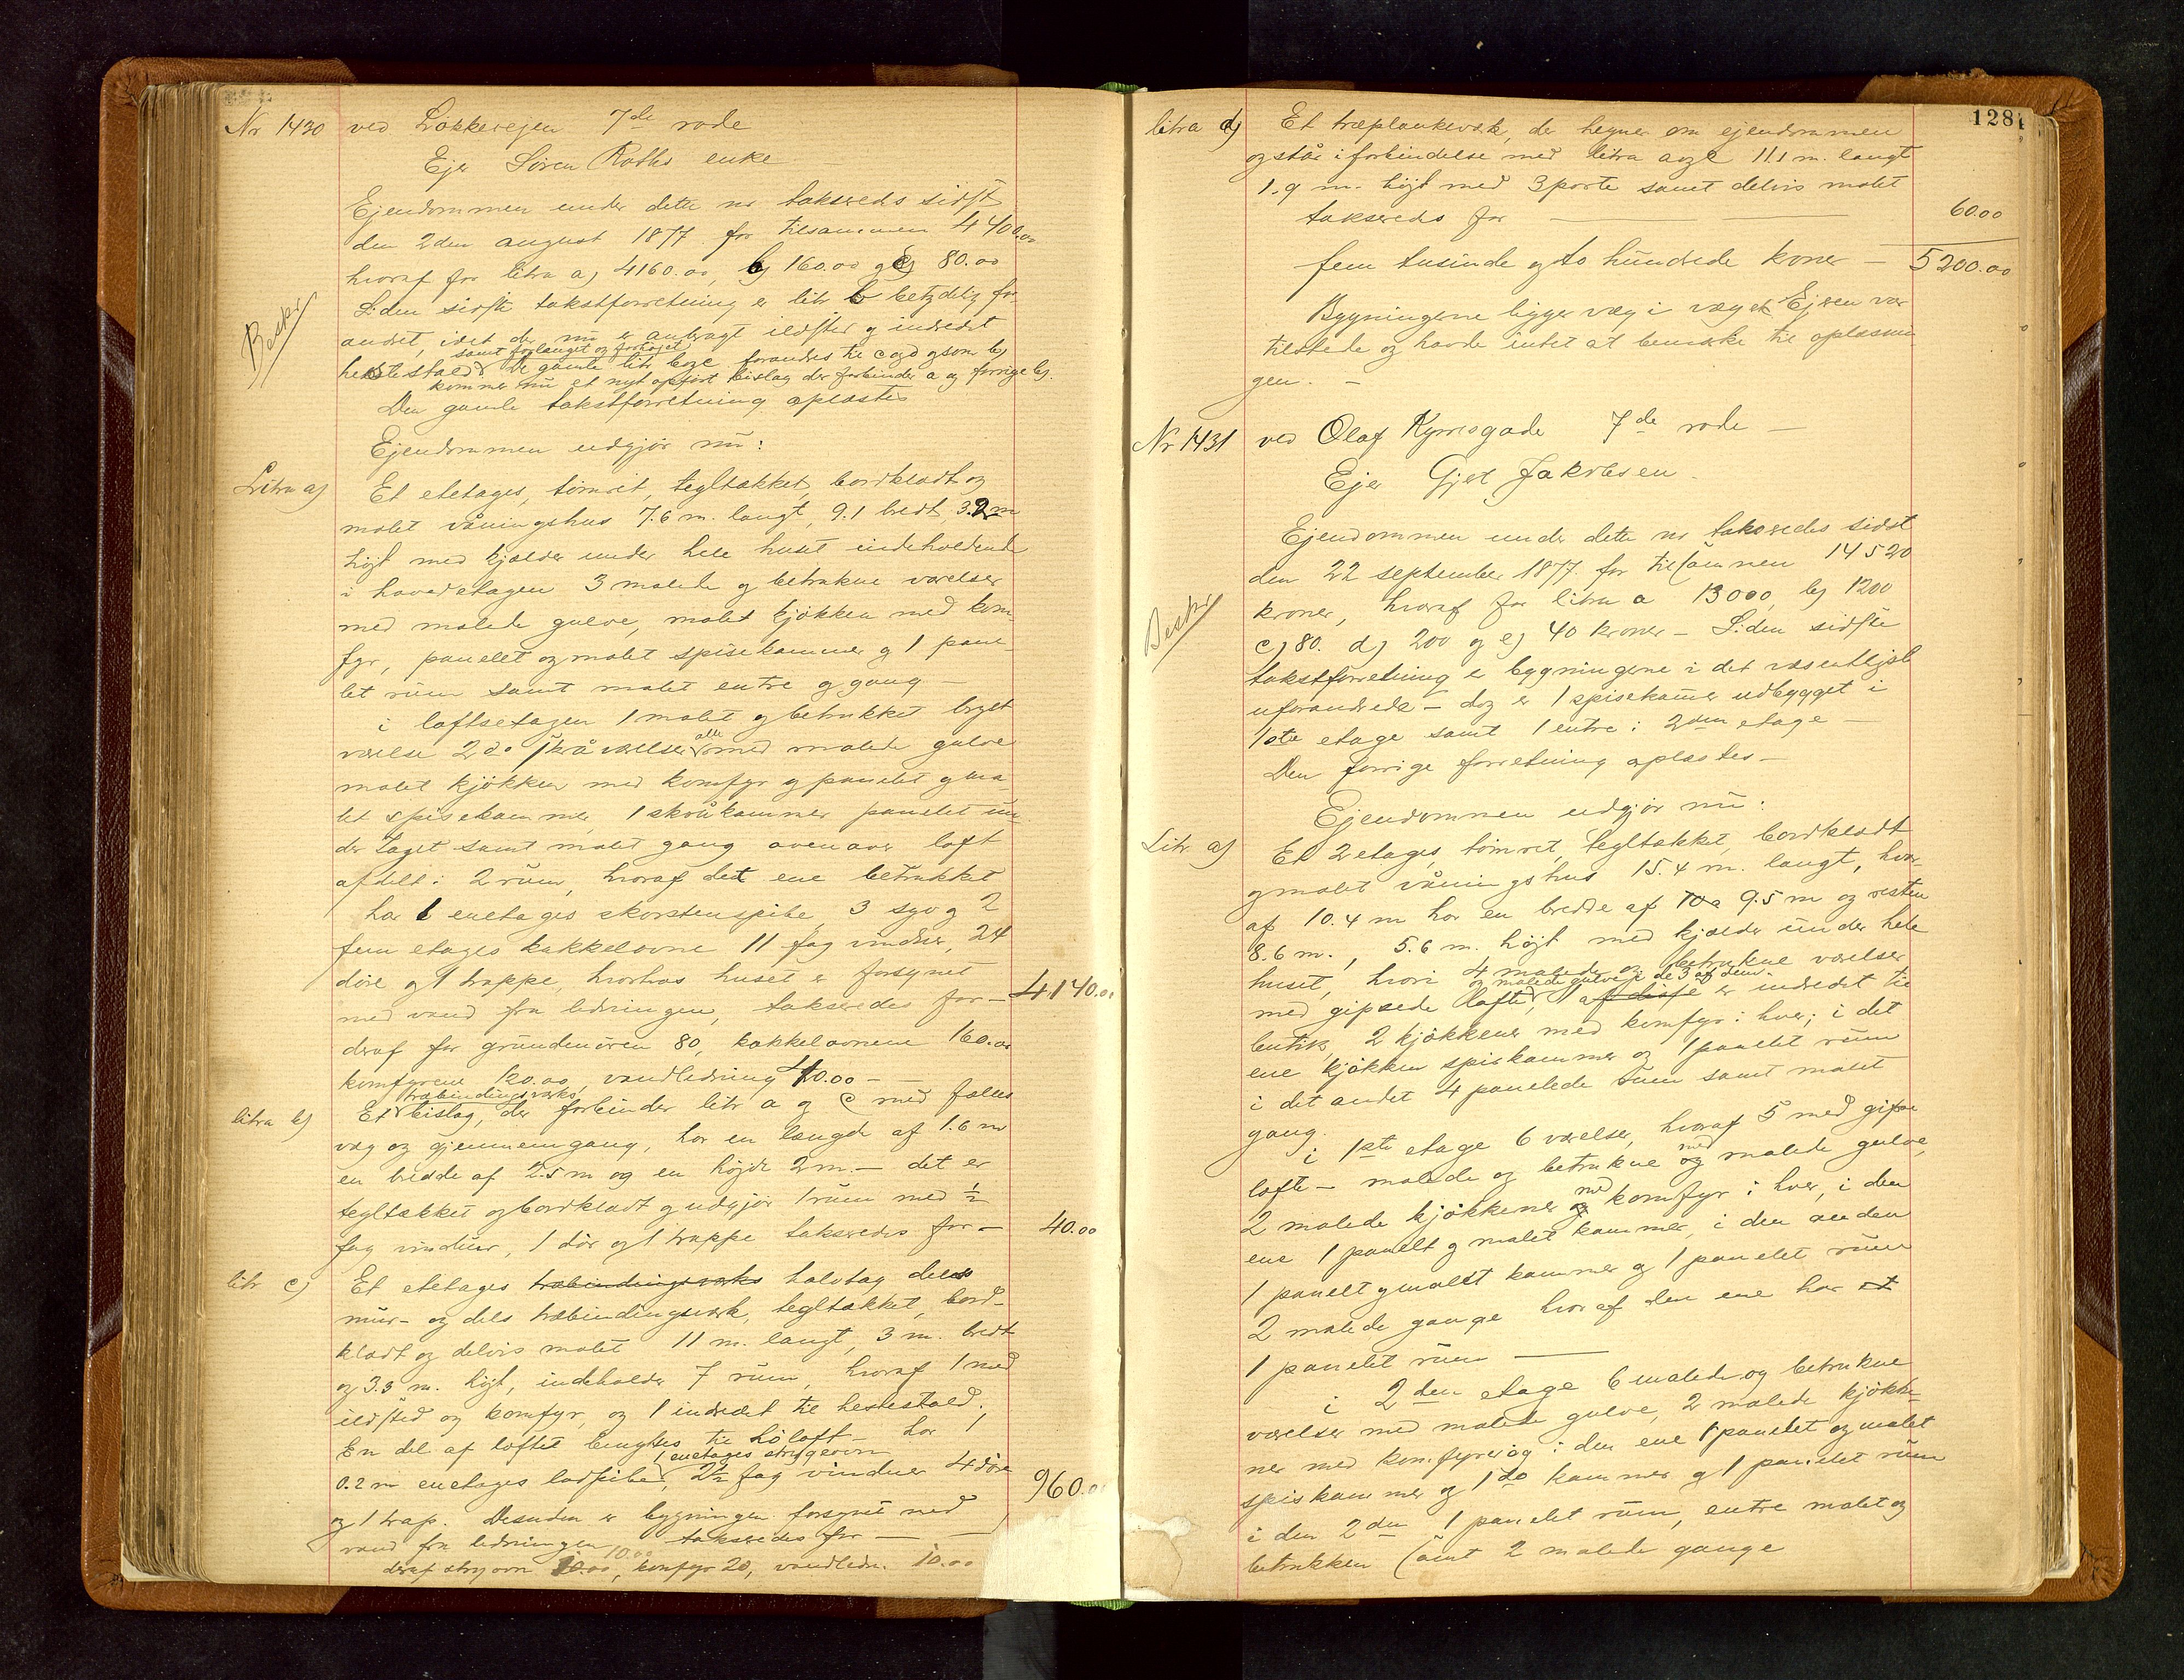 Nr 1430 ved Løkkevejen 7de rode
Ejer Sören Roths enke
Ejendommen under dette nr takseredes sidst
den 2den august 1877 for tilsammen 4400.00
hvoraf for litra a) 4160.00, b) 160.00 og c) 80.00
Siden sidste takstforretning er litr b betydelig for-
andret, idet der nu er anbragt ildsted og indredet
samt forlænget og forhøjet
hestestald. De gamle litr b og c forandres til c og d og som b)
kommer nu et nyt opført bislag der forbinder a og forrige b).
Beskr
Den gamle takstforretning oplæstes
Ejendommen udgjör nu:
Litra a) Et etetages, tömret, tegltækket, bordklædt og
malet våningshus 7.6 m. langt, 9.1 bredt, 3.2 m
höjt med kjælder under hele huset indeholdende
i hovedetagen 3 malede og betrukne værelser
med malede gulve, malet kjökken med kom-
fyr, panelet og malet spisekammer og 1 pane-
let rum samt malet entre og gang —
i loftsetagen 1 malet og betrukket kvist
værelse 2 do skråværelser alle med malede gulve
malet kjökken med komfyr og panelet og ma-
let spisekammer, 1 skråkammer panelet un-
der taget samt malet gang ovenover loft
afdelt i 2 rum, hvoraf det ene betrukket
har 1 enetages skorstenspibe, 3 syv og 2
fem etages kakkelovne 11 fag vinduer, 24
döre og 1 trappe, hvorhos huset er forsynet
med vand fra ledningen, takseredes for — 4140.00
deraf for grundmuren 80, kakkelovnene 160.00
komfyrene 120.00, vandledning 40.00 —
træbindingsværks
litra b) Et bislag, der forbinder litr a og c med fælles
væg og gjennemgang, har en længde af 1.6 m
en bredde af 2.5 m og en höjde 2 m. — det er
tegltækket og bordklædt og udgjör 1 rum med ½
fag vinduer, 1 dör og 1 trappe takseredes for — 40.00
litr c) Et etetages træbindingsværks halvtag dels
mur- og dels træbindingsværk, tegltækket, bord-
klædt og delvis malet 11 m. langt, 3 m. bredt
og 3.3 m. höjt, indeholder 7 rum, hvoraf 1 med
ildsted og komfyr, og 1 indredet til hestestald.
En del af loftet benyttes til höloft — har 1
1 enetages strygeovn
0.2 m enetages ladpibe, 2½ fag vinduer 4 döre
og 1 trap. Desuden er bygningen forsynet med
vand fra ledningen takseredes for — 960.00
deraf strygovn 10.00, komfyr 20, vandledn. 10.00
128
litra d) Et træplankeværk, der hegner om ejendommen
og står i forbindelse med litra a og c 111 m. langt
1.9 m. höjt med 3 porte samt delvis malet
takseredes for — 60.00
fem tusinde og to hundrede kroner — 5200.00
Bygningerne ligger væg i væg. Ejeren var
tilstede og havde intet at bemærke til oplæsnin
gen. —
Nr 1431 ved Olaf Kyrresgade 7de rode —
Ejer Gjert Jakobsen
Ejendommen under dette nr takseredes sidst
den 22 september 1877 for tilsammen 14520
kroner, hvoraf for litra a 13000, b) 1200
c) 80. d) 200 og e) 40 kroner — Siden sidste
Beskr
takstforretning er bygningerne i det væsentligst
uforandrede — dog er 1 spisekammer udbygget i
1ste etage samt 1 entre i 2den etage —
Den forrige forretning oplæstes —
Ejendommen udgjör nu:
Litr a) Et 2etages, tömret, tegltækket, bordklædt
og malet våningshus 15.4 m. langt, hvor-
af 10.4 m har en bredde af 9.5 m og resten
8.6 m., 5.6 m. höjt med kjælder under hele
huset, hvori 4 malede og betrukne værelser
og malede gulve i de 3 af dem
med gipsede lofte, 1 af disse er indredet til
butik, 2 kjökkener med komfyr i hver; i det
ene kjökken spiskammer og 1 panelet rum
i det andet 4 panelede rum samt malet
gang.
i 1ste etage 6 værelser, hvoraf 5 med gipse
lofte — malede og betrukne med og malede gulve,
2 malede kjökkener med og komfyr i hver, i den
ene 1 panelt og malet kammer, i den anden
1 panelt og malet kammer og 1 panelet rum
2 malede gange hvoraf den ene har et
1 panelet rum —
i 2den etage 6 malede og betrukne
værelser med malede gulve, 2 malede kjökke-
ner med komfyrer og i den ene 1 panelet og malet
spiskammer og 1 do kammer og 1 panelet rum
i den 2den 1 panelet rum, entre malet og
betrukken samt 2 malede gange